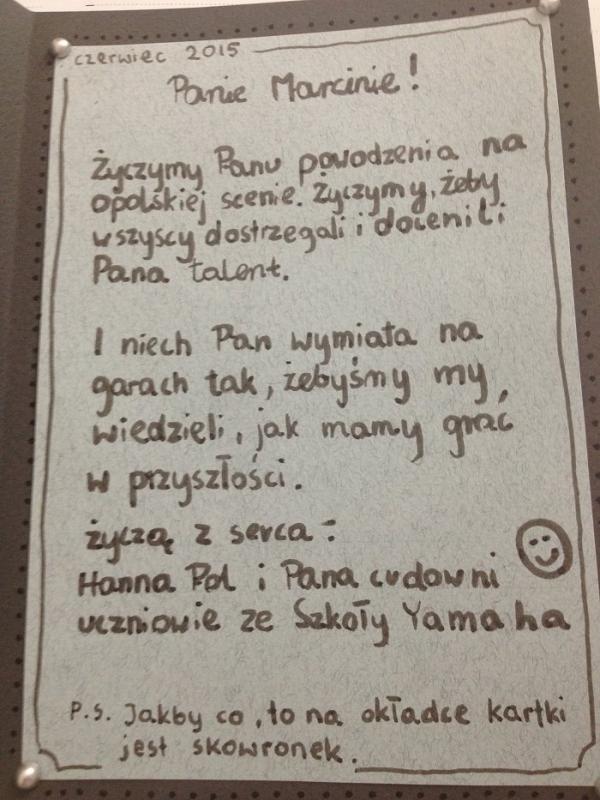 czerwiec 2015
Panie Marcinie!
Życzymy Panu powodzenia na
opolskiej scenie. Życzymy, żeby
wszyscy dostrzegali i docenili
Pana talent.
I niech Pan wymiata na
garach tak, żebyśmy my
wiedzieli, jak mamy grać
w przyszłości.
życzą z serca:
Hanna Pol i Pana cudowni
uczniowie ze Szkoły Yamaha
P.S. Jakby co, to na okładce kartki
jest skowronek.